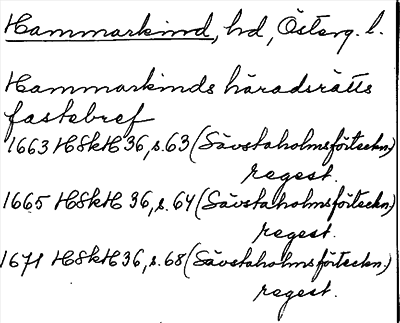 Hammarkind, hd, Österg. l.
Hammarkinds häradsrätts
fastebref
1663 HSkH 36, s. 63 (Sävstaholmsförteckn.)
regest.
1665 HSkH 36, s. 64 (Sävstaholmsförteckn.)
regest.
1671 HSkH 36, s. 68 (Sävstaholmsförteckn.)
regest.